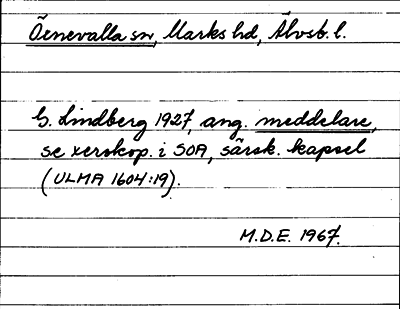 Öxnevalla sn, Marks hd, Älvsb. l.
G. Lindberg 1927, ang. meddelare,
se xerokop. i SOA, särsk. kapsel
(ULMA 1604:19).
M.D.E. 1967.